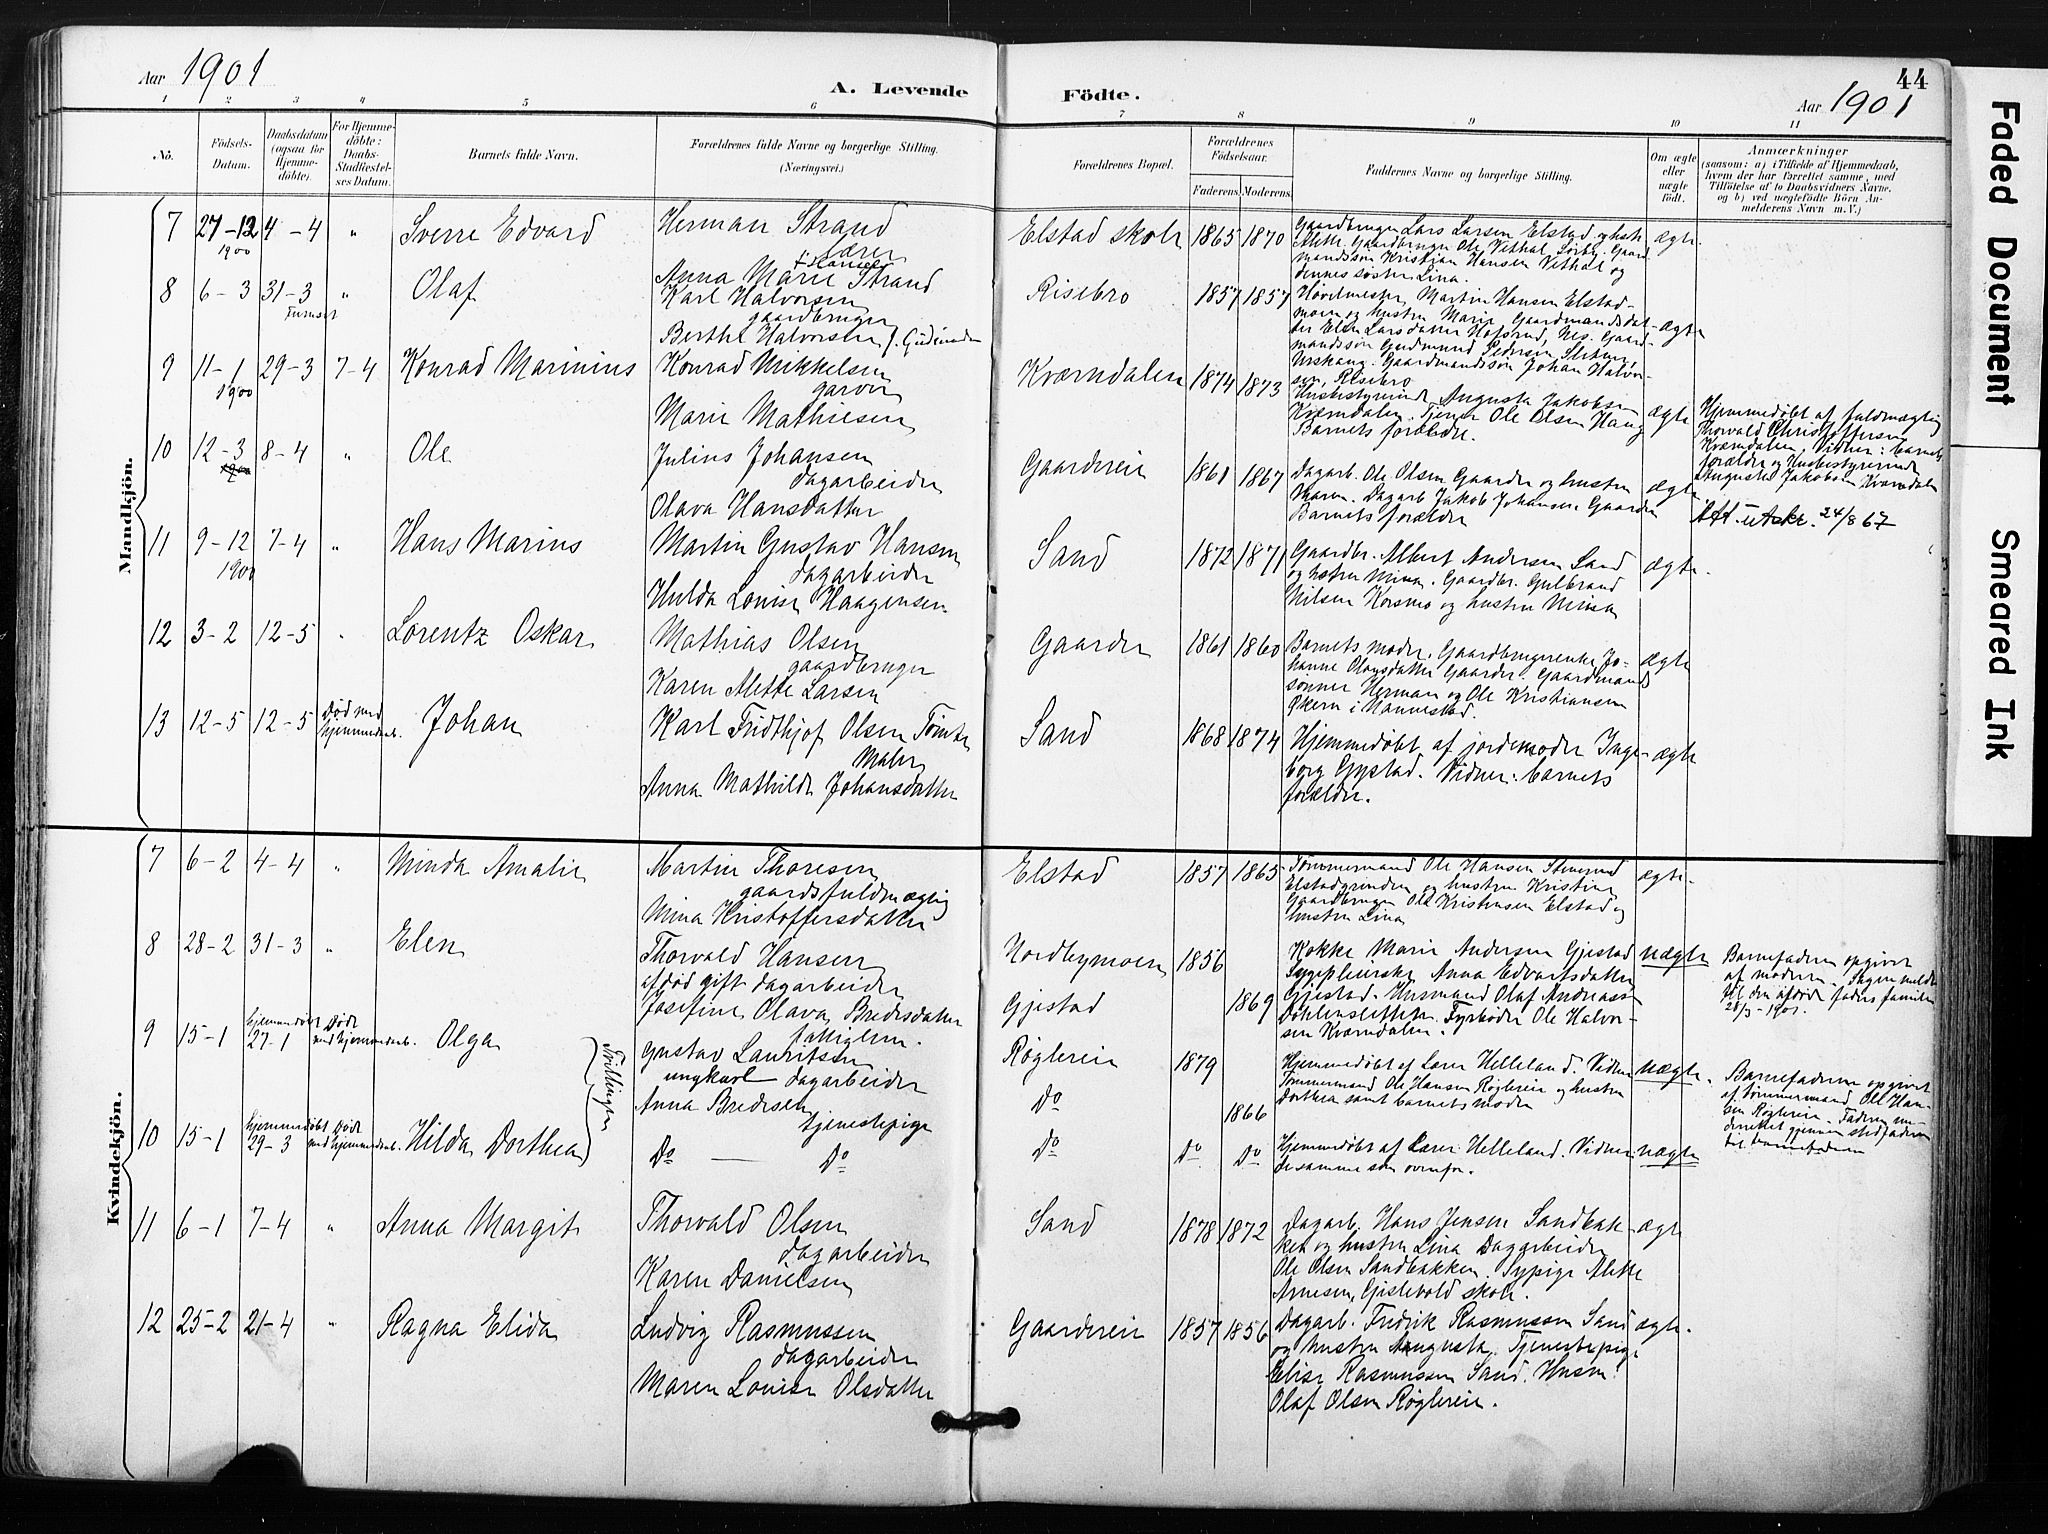 Aar 1901
A. Levende Födte.
Aar 1901
44
1 2 3 4 5 6 7 8 9 10 11
No.
Födsels-
Datum.
Daabsdatum
(ogsaa for
Hjemme-
döbte).
For Hjemme-
döbte:
Daabs-
Stadfæstel-
ses Datum.
Barnets fulde Navn.
Forældrenes fulde Navne og borgerlige Stilling.
(Næringsvei.)
Forældrenes Bopæl.
Forældrenes
Födselsaar.
Faderens. Moderens.
Faddernes Navne og borgerlige Stilling.
Om ægte
eller
uægte
födt.
Anmærkninger
(saasom: a) i Tilfælde af Hjemmedaab,
hvem der har forrettet samme, med
Tilföielse af to Daabsvidners Navne.
og b) ved uægtefödte Börn An-
melderens Navn m. V.)
Mandkjön.
7 27-12 1900 4-4 " Sverre Edvard
Herman Strand
lærer
Anna Marie Strand
Elstad skole 1865 1870
Gaardbruger Lars Larsen Elstad og hstr
Alette. Gaardbruger Ole Vethal, Sørby. Gaard
mandssøn Kristian Hansen Vethal og
dennes søster Lina.
ægte
8 6-3 31-3 Furuset " Olaf
Karl Halvorsen
gaardbruger
Berthe Halvorsen f. Gudmunds
Risebro 1857 1857
Høvelmester Martin Hansen Elstad-
moen og hustru Marie. Gaardmandsdat-
ter Elen Larsdatter Hofsrud, Nes. Gaard-
mandssøn Gudmund Pedersen
Urskaug. Gaardmandssøn Johan Halvor-
sen, Risebro
ægte
9 11-1 1900 29-3 7-4 Konrad Marinius
Konrad Mikkelsen
garver
Marie Mathiesen
Kværndalen 1874 1873
Husbestyrerinde Augusta Jakobsen
Kværndalen. Tjener Ole Olsen Haug
Barnets forældre.
ægte
Hjemmedøbt af fuldmægtig
Thorvald Christoffersen
Kværndalen, Vidner: barnets
forældre og Husbestyrerinde
Augusta Jakobsen Kværndalen
10 12-3 1900 8-4 " Ole
Julius Johansen
dagarbeider
Olava Hansdatter
Gaardereie 1861 1867
Dagarb. Ole Olsen Gaarder og hustru
Maren. Dagarb Jakob Johansen, Gaarder
Barnets forældre
ægte
Att. utskr. 24/8 67
11 9-12 1900 7-4 " Hans Marius
Martin Gustav Hansen
dagarbeider
Hulda Louise Haagensen
Sand 1872 1871
Gaardbr. Albert Andersen Sand
og hstru Mina. Gaardbr. Gulbrand
Nilsen Korsmo og hustru Minsa
ægte.
12 3-2 12-5 " Lorentz Oskar
Mathias Olsen
gaardbruger
Karen Alette Larsen
Gaarder 1861 1860
Barnets moder. Gaardbrugerenke Jo-
hanne Olausdatter Gaarder. Gaardmands
sønner Herman og Ole Kristiansen
Økern i Nannestad.
ægte
13 12-5 12-5 Død ved
hjemmedaab. Johan
Karl Fridthjof Olsen Tømte
Maler
Anna Mathilde Johansdatter
Sand 1868 1874
Hjemmedøbt af jordemoder Inge-
borg Gystad. Vidner: barnets
forældre.
ægte
Kvindekjön.
7 6-2 4-4 " Minda Amalie
Martin Thoresen
gaardsfuldmægtig
Mina Kristoffersdatter
Elstad 1857 1865
Tømmermand Ole Hansen
Elstadgrinden og hustru Kristine
Gaardbruger Ole Kristensen Elstad og
hustru Lina
ægte.
8 28-2 31-3 " Elen
Thorvald Hansen
afdød gift dagarbeider
Josefine Olava Bredesdatter
fattiglem.
Nordbymoen 1856
Gjestad 1869
Kokke Marie Andersen Gjestad
Sygepleierske Anna Edvartsdatter
Gjestad. Husmand Olaf Andreass
Døhlensletten. Fyrbøder Ole Halvor-
sen Kværndalen.
uægte
Barnefaderen opgivet
af moderen. Skjem meldt
til den afdøde faders familie
28/3-1901.
9 15-1 hjemmedøbt
27-1 Døde
ved hjemmedaab. Olga
Gustav Lauritsen
ungkarl dagarbeider
Anna Bredesen
tjenestepige
Tvillinger
Røglereie 1879
Do 1866
Hjemmedøbt af Lærer Helleland. Vidner
Tømmermand Ole Hansen Røglereie og hustru
Dorthea samt barnets moder
uægte.
Barnefaderen opgivet
af Tømmermand Ole Han-
sen Røglereie. Faderen un-
derrettet gjennem stedfaderen
til barnefaderen
10 15-1 hjemmedøbt
29-3 Døde
ved hjemmedaab. Hilda Dorthea
Do — Do
Do Do Do
Hjemmedøbt af Lærer Helleland. Vidner:
de samme som ovenfor.
uægte
11 6-1 7-4 " Anna Margit
Thorvald Olsen
dagarbeider
Karen Danielsen
Sand 1878 1872
Dagarb. Hans Jensen Sandbak-
ken og hustru Lina Dagarbeider
Ole Olsen Sandbakken. Sypige Alette
Arnesen, Gislevold skole.
ægte
12 25-2 21-4 " Ragna Elida
Ludvig Rasmussen
dagarbeider
Maren Louise Olsdatter
Gaardereie 1857 1856
Dagarb. Fredrik Rasmussen Sand
og hustru Augusta. Tjenestepige
Elise Rasmussen Sand. Husm.
Olaf Olsen Røglereie.
ægte.
Faded Document
Smeared Ink